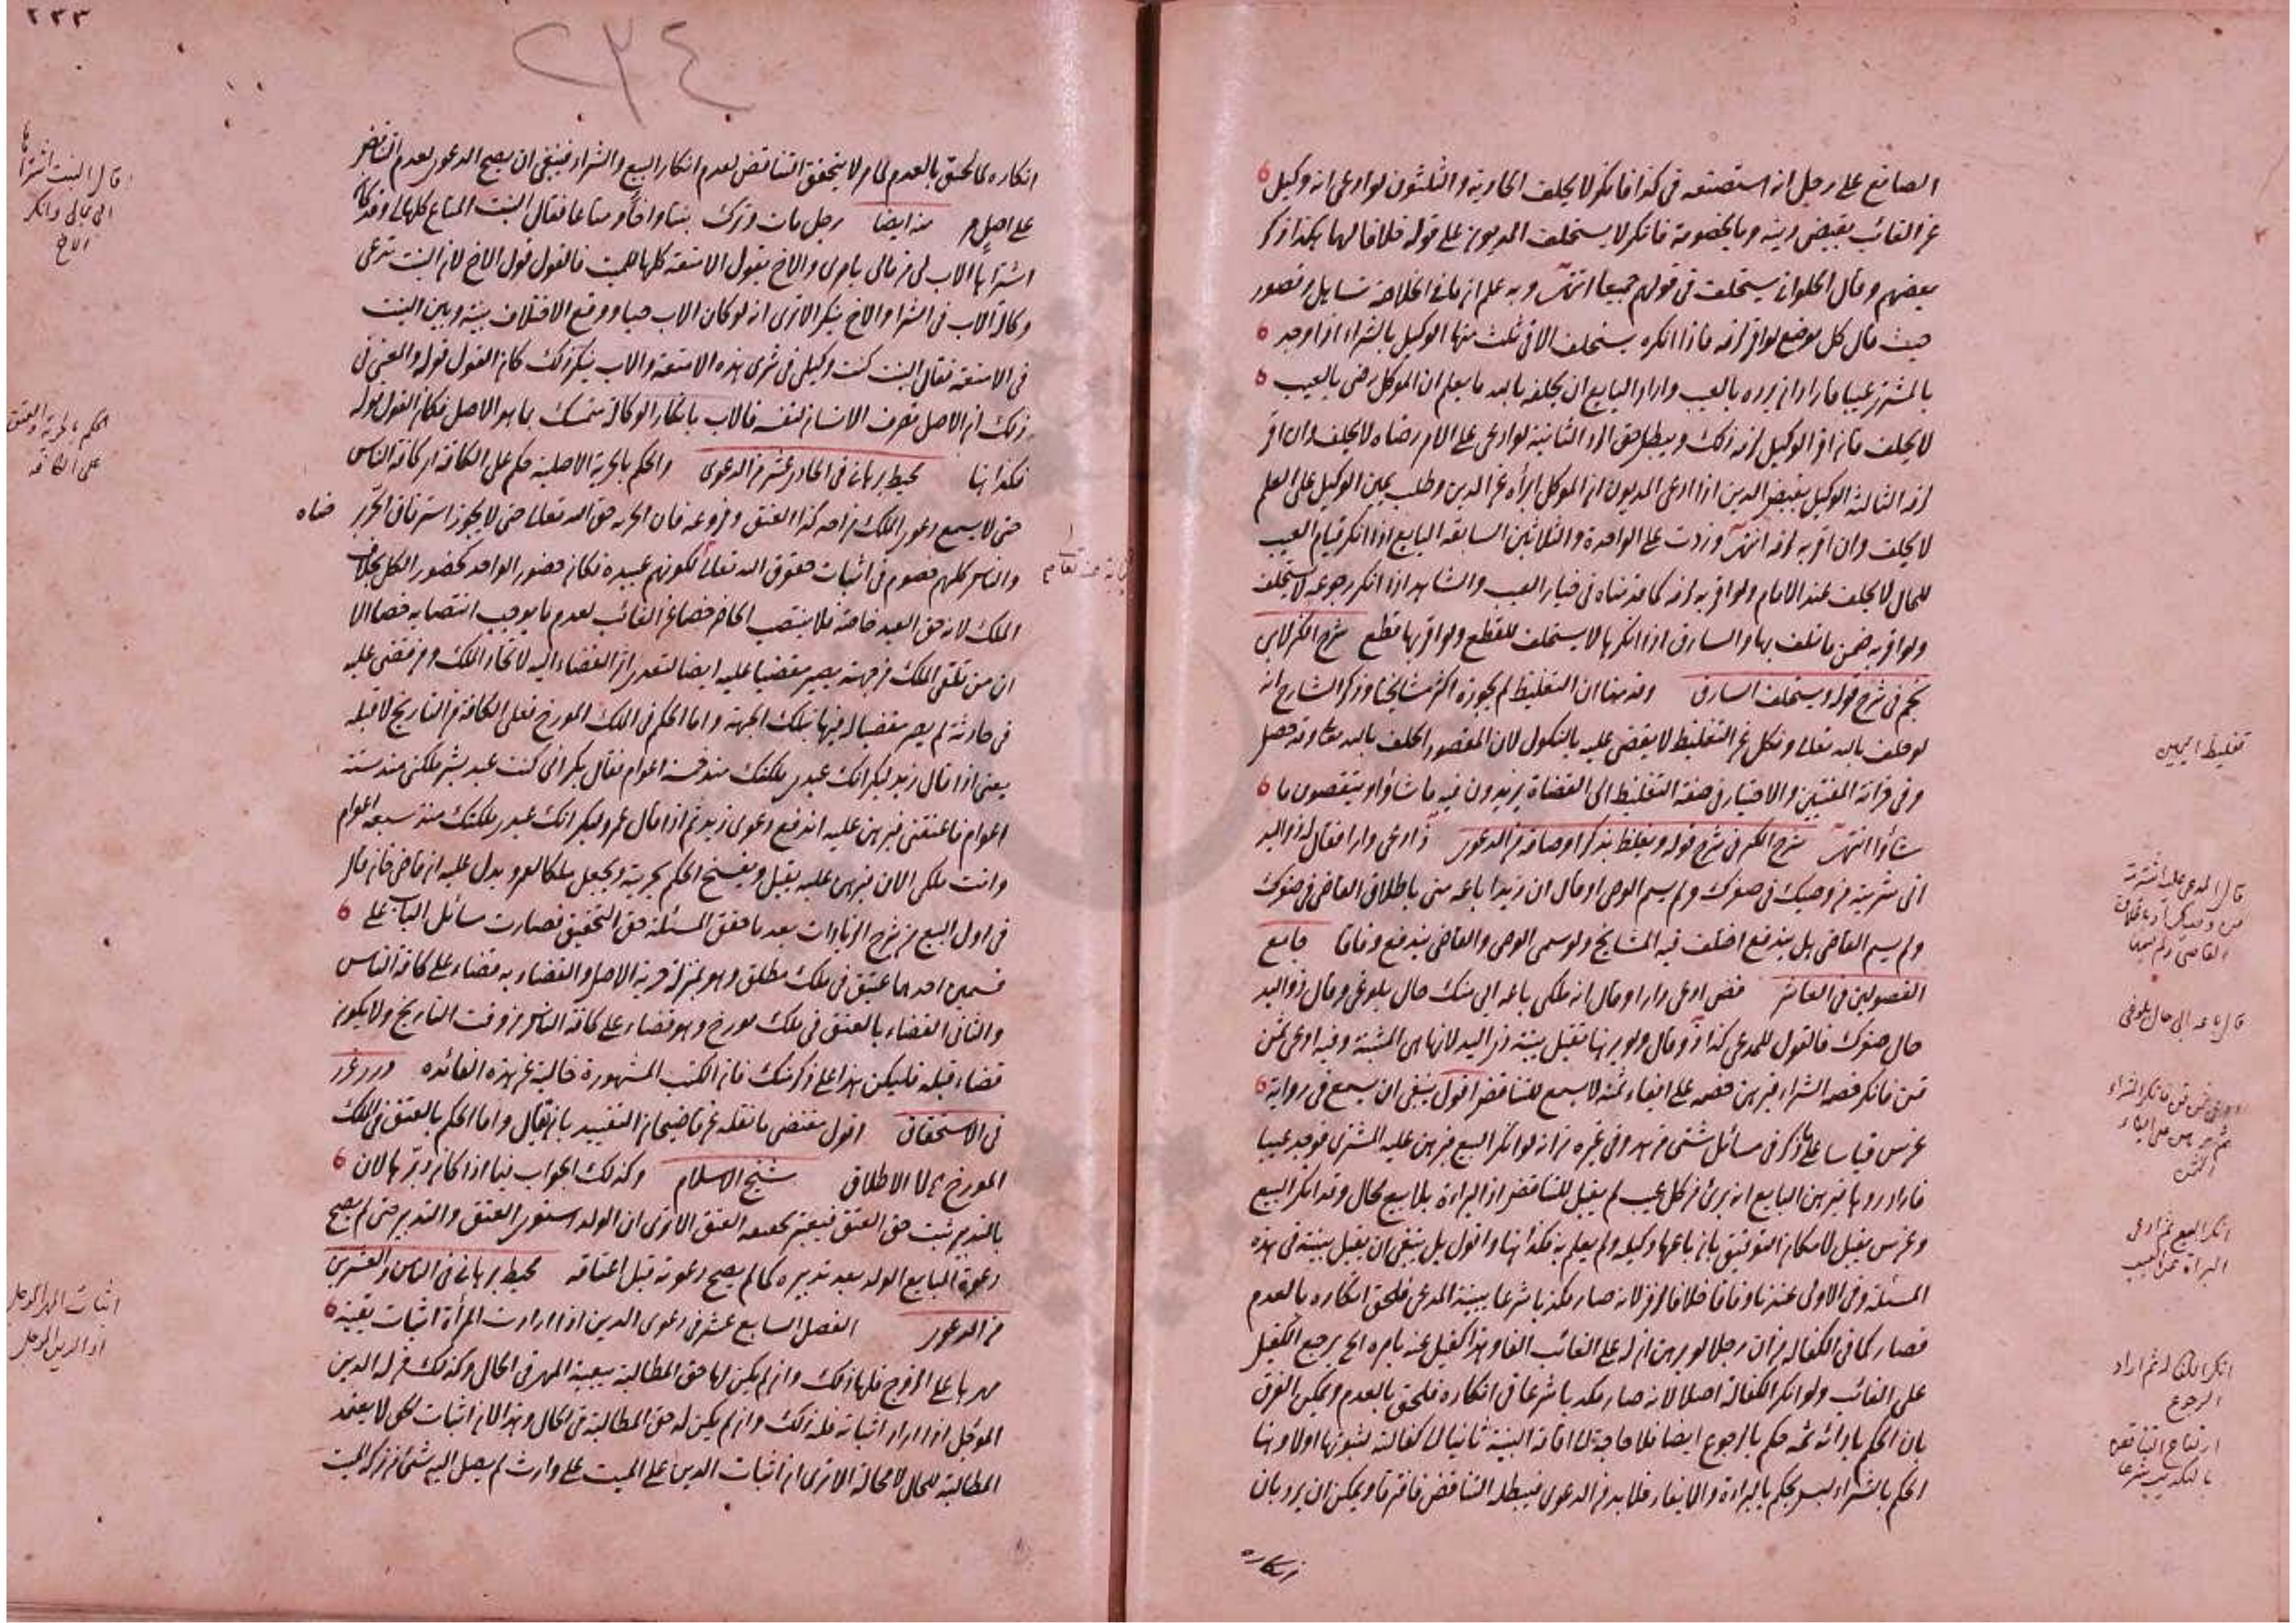 الصانع على رجل انه استصنعه في كذا فانكر لا يحلف الحادية والثلثون لو ادعى انه وكيل
عن الغائب بقبض دينه وبالخصومة فانكر لا يستحلف المديون على قوله خلافا لهما هكذا ذكر
بعضهم وقال الحلواني يستحلف في قولهم جميعا انتهى وبه علم ان ما في الخلاصة تساهل وقصور
حيث قال كل موضع لو اقر لزمه فاذا انكره يستحلف الا في ثلث منها الوكيل بالشراء اذا وجد
بالمشترى عيبا فاراد ان يرده بالعيب واراد البايع ان يحلفه بالله ما يعلم ان الموكل رضى بالعيب
لا يحلف فان اقر الوكيل لزمه ذلك ويبطل حق الرد الثانية لو ادعى على الآمر رضاه لا يحلف وان اقر
لزمه الثالثة الوكيل بقبض الدين اذا ادعى المديون ان الموكل ابرأه عن الدين وطلب يمين الوكيل على العلم
لا يحلف وان اقر به لزمه انتهى وزدت على الواحدة والثلاثين السابقة البايع اذا انكر قيام العيب
للحال لا يحلف عند الامام ولو اقر به لزمه كما قدمناه في خيار العيب والشاهد اذا انكر رجوعه لا يستحلف
ولو اقر به ضمن ما تلف بها والسارق اذا انكرها لا يستحلف للقطع ولو اقر بها قطع شرح الكنز لابن
نجيم في شرح قوله ويستحلف السارق وقدمنا ان التغليظ لم يجوزه اكثر مشايخنا وذكر الشارح انه
لو حلف بالله تعالى ونكل عن التغليظ لا يقضى عليه بالنكول لان المقصود الحلف بالله تعالى وقد حصل
وفي خزانة المفتين والاختيار في صفة التغليظ الى القضاة يزيدون فيه ما شاؤا وينقصون ما
شاؤا انتهى شرح الكنز في شرح قوله ويغلظ بذكر اوصافه من الدعوى ادعى دارا فقال ذو اليد
اني شريته من وصيك في صغرك ولم يسم الوصي او قال ان زيدا باعه مني باطلاق القاضي في صغرك
ولم يسم القاضي هل يندفع اختلف فيه المشايخ ولو سمى الوصي والقاضي يندفع وفاقا جامع
الفصولين في العاشر ادعى دارا وقال انه ملكي باعه ابي منك حال بلوغي وقال ذو اليد
حال صغرك فالقول للمدعي وقال ولو برهنا تقبل بينة ذي اليد لانها هي المثبتة وفيه ادعى ثمن
قن فانكر خصمه الشراء فبرهن خصمه على ايفاء ثمنه لا يسمع للتناقض اقول ينبغي ان يسمع في رواية
عن س قياسا على ما ذكر في مسائل شتى من هد وفي غيره من انه لو انكر البيع فبرهن عليه المشتري فوجد عيبا
فاراد ردها فبرهن البايع انه برئ من كل عيب لم يقبل للتناقض اذ البراءة بلا بيع محال وقد انكر البيع
وعن س يقبل لامكان التوفيق بان باعها وكيله ولم يعلم به فكذا هنا واقول بل ينبغي ان يقبل بينته في هذه
المسئلة وفي الاولى عندنا وفاقا خلافا لزفر لانه صار مكذبا شرعا ببينة المدعي فلحق انكاره بالعدم
فصار كما في الكفالة من ان رجلا لو برهن ان له على الغائب الفا وهذا كفيل عنه بامره الخ يرجع الكفيل
على الغائب ولو انكر الكفالة اصلا لانه صار مكذبا شرعا في انكاره فلحق بالعدم ويمكن الفرق
بان الحكم بادائه ثمه حكم بالرجوع ايضا فلا حاجة الى اقامة البينة ثانيا الى كفالته لثبوتها اولا وهنا
الحكم بالشراء ليس بحكم بالبراءة والايفاء فلا بد من الدعوى فيبطله التناقض فافترقا ويمكن ان يرد بان
تغليظ اليمين
قال باعه ابي حال بلوغي
انكر البيع ثم ادعى
البراة عن العيب
انكر الكفالة ثم اراد
الرجوع
ارتفاع التناقض
بالتكذيب شرعا
انكاره
٢٣٣
٢٣٤
انكاره لما لحق بالعدم لم يتحقق التناقض لعدم انكار البيع والشراء فينبغي ان يصح الدعوى لعدم التناقض
على اصل منه ايضا رجل مات وترك بنتا واخا ومتاعا فقال البنت المتاع كلها لي وقد كان
اشتراها الاب لي من مالي بامري والاخ يقول الامتعة كلها للميت فالقول قول الاخ لان البنت تدعى
وكالة الاب في الشراء والاخ ينكر الا ترى انه لو كان الاب حيا ووقع الاختلاف بينه وبين البنت
في الامتعة فقال البنت كنت وكيلي في شرى هذه الامتعة والاب ينكر ذلك كان القول قوله والمعنى في
ذلك ان الاصل تصرف الانسان لنفسه فالاب بانكار الوكالة متمسك بما هو الاصل فكان القول قوله
فكذا هنا محيط برهاني في الحادي عشر من الدعوى والحكم بالحرية الاصلية حكم على الكافة اي كافة الناس
حتى لا يسمع دعوى الملك من احد كذا العتق وفروعه فان الحرية حق الله تعالى حتى لا يجوز استرقاق الحر برضاه
والناس كلهم خصوم في اثبات حقوق الله تعالى لكونهم عبيده فكان حضور الواحد كحضور الكل بخلاف
الملك لانه حق العبد خاصة فلا ينتصب الحاضر خصما عن الغائب لعدم ما يوجب انتصابه خصما الا
ان من تلقى الملك من جهته يصير مقضيا عليه ايضا لتعدى اثر القضاء اليه لاتحاد الملك ومن قضى عليه
في حادثة لم يصر مقضيا له فيها بتلك الجهة واما الحكم في الملك المورخ فعلى الكافة من التاريخ لا قبله
يعني اذا قال زيد لبكر انك عبدي ملكتك منذ خمسة اعوام فقال بكر اني كنت عبد بشر ملكني منذ ستة
اعوام فاعتقني فبرهن عليه اندفع دعوى زيد ثم اذا قال عمرو لبكر انك عبدي ملكتك منذ سبعة اعوام
وانت ملكي الآن فبرهن عليه يقبل ويفسخ الحكم بحريته ويجعل ملكا لعمرو ويدل عليه ان قاضي خان قال
في اول البيع من شرح الزيادات بعد ما حقق المسئلة حق التحقيق فصارت مسائل الباب على
قسمين احدهما عتق في ملك مطلق وهو بمنزلة حرية الاصل والقضاء به قضاء على كافة الناس
والثاني القضاء بالعتق في ملك مورخ وهو قضاء على كافة الناس من وقت التاريخ ولا يكون
قضاء قبله فليكن هذا على ذكر منك فان الكتب المشهورة خالية عن هذه الفائدة درر غرر
في الاستحقاق اقول مقتضى ما نقله عن قاضيخان التقييد بان يقال واما الحكم بالعتق في الملك
المورخ لا الاطلاق شيخ الاسلام وكذلك الجواب فيما اذا كان دبرها لان
بالتدبير ثبت حق العتق فيعتبر بحقيقة العتق الا ترى ان الولد استوى العتق والتدبير حتى لم يصح
دعوة البايع الولد بعد تدبيره كما لم يصح دعوته قبل اعتاقه محيط برهاني في الخامس والعشرين
من الدعوى الفصل السابع عشر في دعوى الدين اذا ارادت المرأة اثبات بقية
مهرها على الزوج فلها ذلك وان لم يكن لها حق المطالبة ببقية المهر في الحال وكذلك من له الدين
المؤجل اذا اراد اثباته فله ذلك وان لم يكن له حق المطالبة في الحال وهذا لان اثبات الحق لا يعتمد
المطالبة للحال لا محالة الا ترى ان اثبات الدين على الميت على وارث لم يصل اليه شئ من تركة الميت
قال البنت اشتراها
ابي لي وانكر
الاخ
الحكم بالحرية والعتق
على الكافة
اثبات المهر المؤجل
او الدين المؤجل